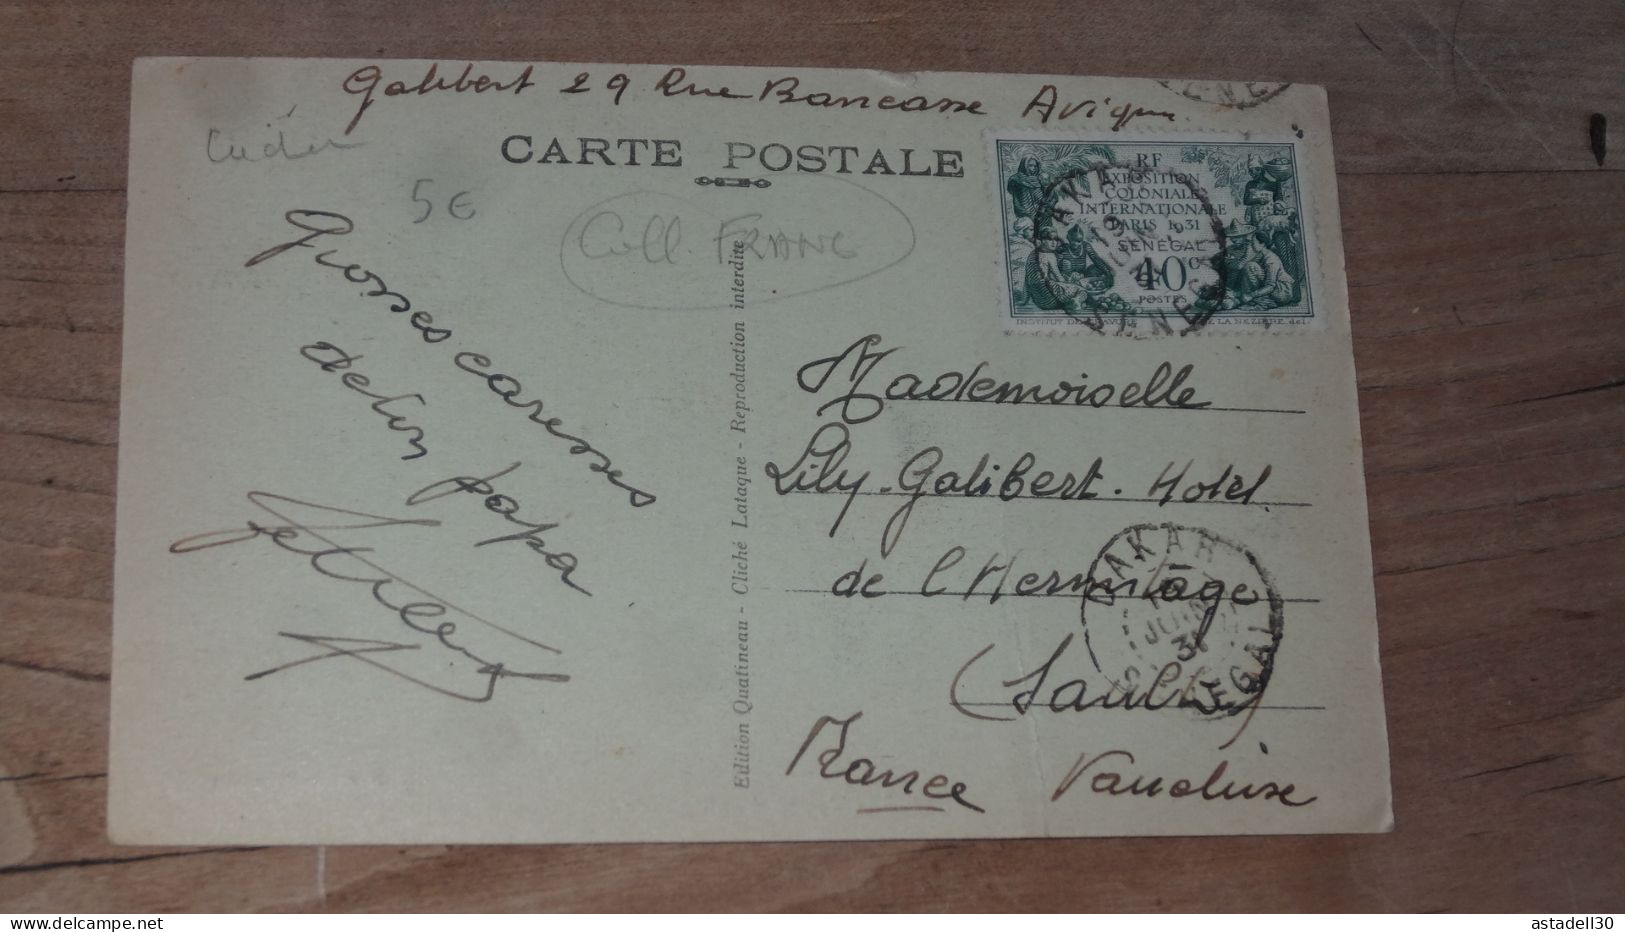 Galibert 29 Rue Bancasse Avignon
CARTE POSTALE
5€
Coll. FRANC
Grosses caresses
de ton papa
RF
EXPOSITION
COLONIALE
INTERNATIONALE
PARIS 1931
SENEGAL
40c
POSTES
INSTITUT DE GRAVURE
DE LA NEZIERE del.
DAKAR
19
JUIN
31
SENEGAL
Mademoiselle
Lily Galibert. Hotel
de l'Hermitage
(Sault)
France Vaucluse
DAKAR
JUIN
31
SENEGAL
Edition Quatineau - Cliché Lataque - Reproduction interdite
astadell30